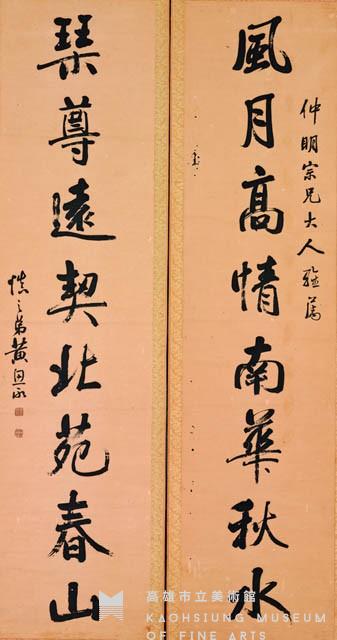 仲明宗兄大人
風月高情南華秋水
琴尊遠契北苑春山
慎之弟黃思永
高雄市立美術館
KAOHSIUNG MUSEUM
OF FINE ARTS